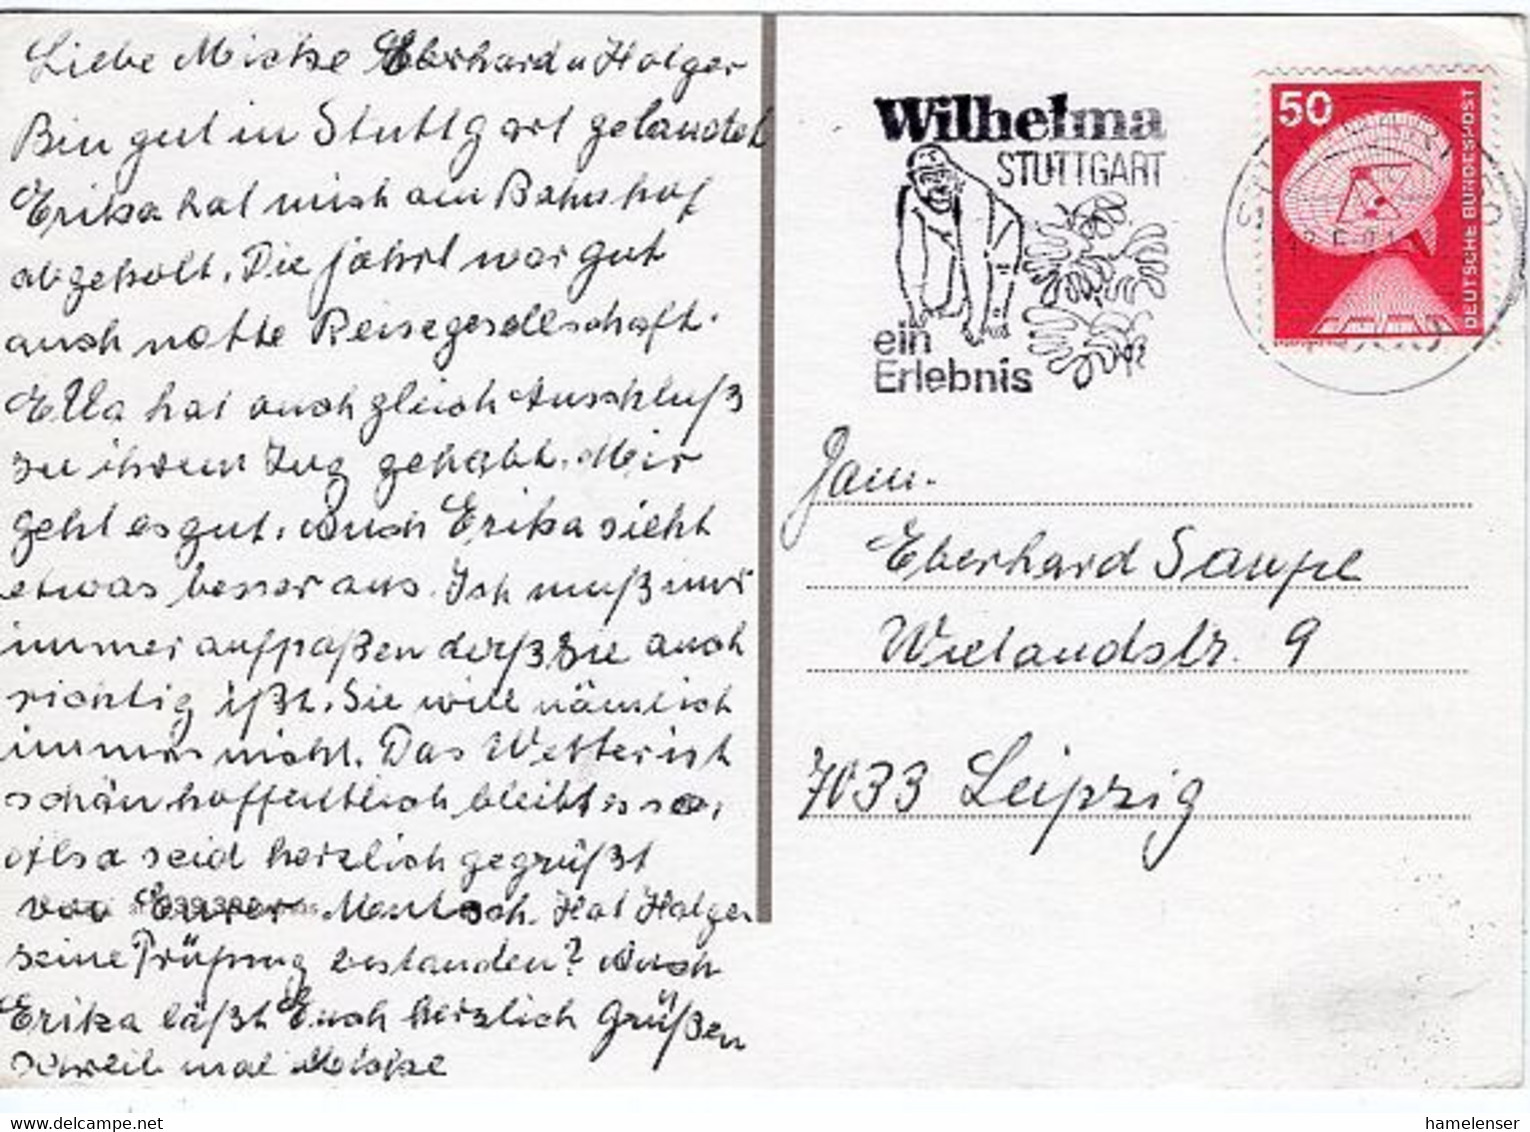 Liebe Mieke Eberhard u Holger
Bin gut in Stuttgart gelandet
Erika hat mich am Bahnhof
abgeholt. Die Fahrt war gut
auch nette Reisegesellschaft.
Ella hat auch gleich Anschluß
zu ihrem Zug gehabt. Mir
geht es gut. Auch Erika sieht
etwas besser aus. Ich muß nur
immer aufpaßen daß Sie auch
richtig ißt. Sie will nämlich
immer nicht. Das Wetter ist
schön hoffentlich bleibt es so.
Also seid herzlich gegrüßt
von Eurer Hat Holger
seine Prüfung bestanden? Auch
Erika läßt Euch herzlich Grüßen
schreib mal Mieke
Wilhelma
STUTTGART
ein
Erlebnis
50
DEUTSCHE BUNDESPOST
Fam.
Eberhard Saupe
Wielandstr. 9
7033 Leipzig
www.delcampe.net
hamelenser